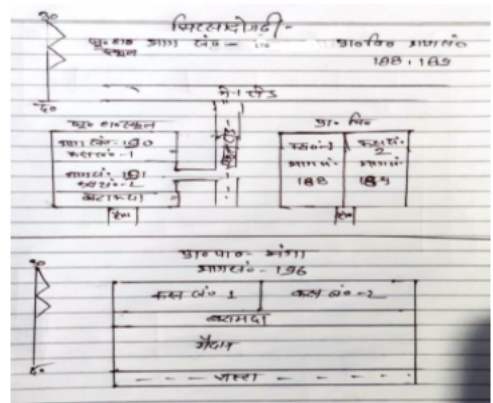 उ०
जू० हा० स्कूल भाग सं० -
प्रा० वि० भाग सं०
188, 189
द०
मेन रोड
जू० हा० स्कूल
भाग सं०-190
कक्ष सं०-1
भाग सं० 191
कक्ष सं०-2
बरामदा
प्रा० वि०
कक्ष सं०-1
भाग सं०-
188
कक्ष सं०
2
भाग सं०
189
प्रा० पा०-
भाग सं०-196
उ०
कक्ष सं० 1
कक्ष सं०-2
बरामदा
मैदान
द०
रास्ता